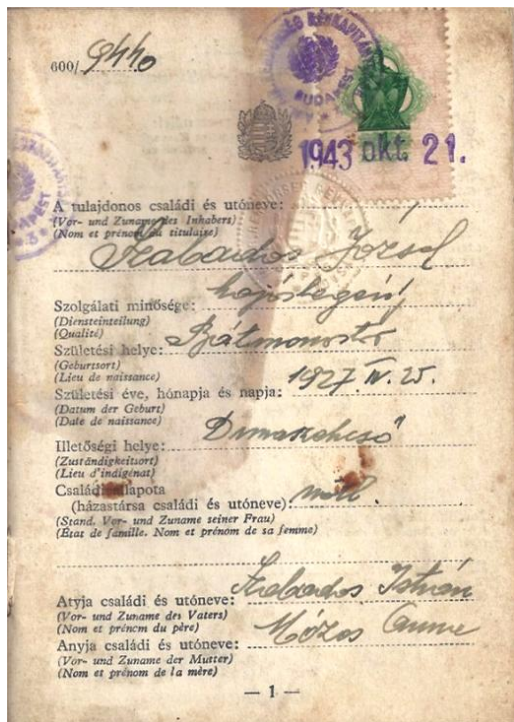 600/9440
1943 okt. 21.
BUDAPEST
A tulajdonos családi és utóneve:
(Vor- und Zuname des Inhabers)
(Nom et prénom du titulaire)
Szabados József
hajóslegény
Szolgálati minősége:
(Diensteinteilung)
(Qualité)
Bátmonostor
Születési helye:
(Geburtsort)
(Lieu de naissance)
1927. IV. 25.
Születési éve, hónapja és napja:
(Datum der Geburt)
(Date de naissance)
Illetőségi helye:
(Zuständigkeitsort)
(Lieu d'indigénat)
Családi állapota
(házastársa családi és utóneve):
(Stand. Vor- und Zuname seiner Frau)
(État de famille. Nom et prénom de sa femme)
Szabados István
Atyja családi és utóneve:
(Vor- und Zuname des Vaters)
(Nom et prénom du père)
Mózos Anna
Anyja családi és utóneve:
(Vor- und Zuname der Mutter)
(Nom et prénom de la mère)
— 1 —